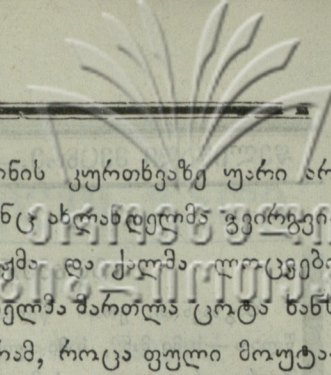 ონის კურთხვაზე უარი არ
ნც ახლანდელმა გვირგვი
ქმა და ქალმა ლოცვები
ელმა მართლა ცოტა ხანს
რამ, როცა ფული მოუტა